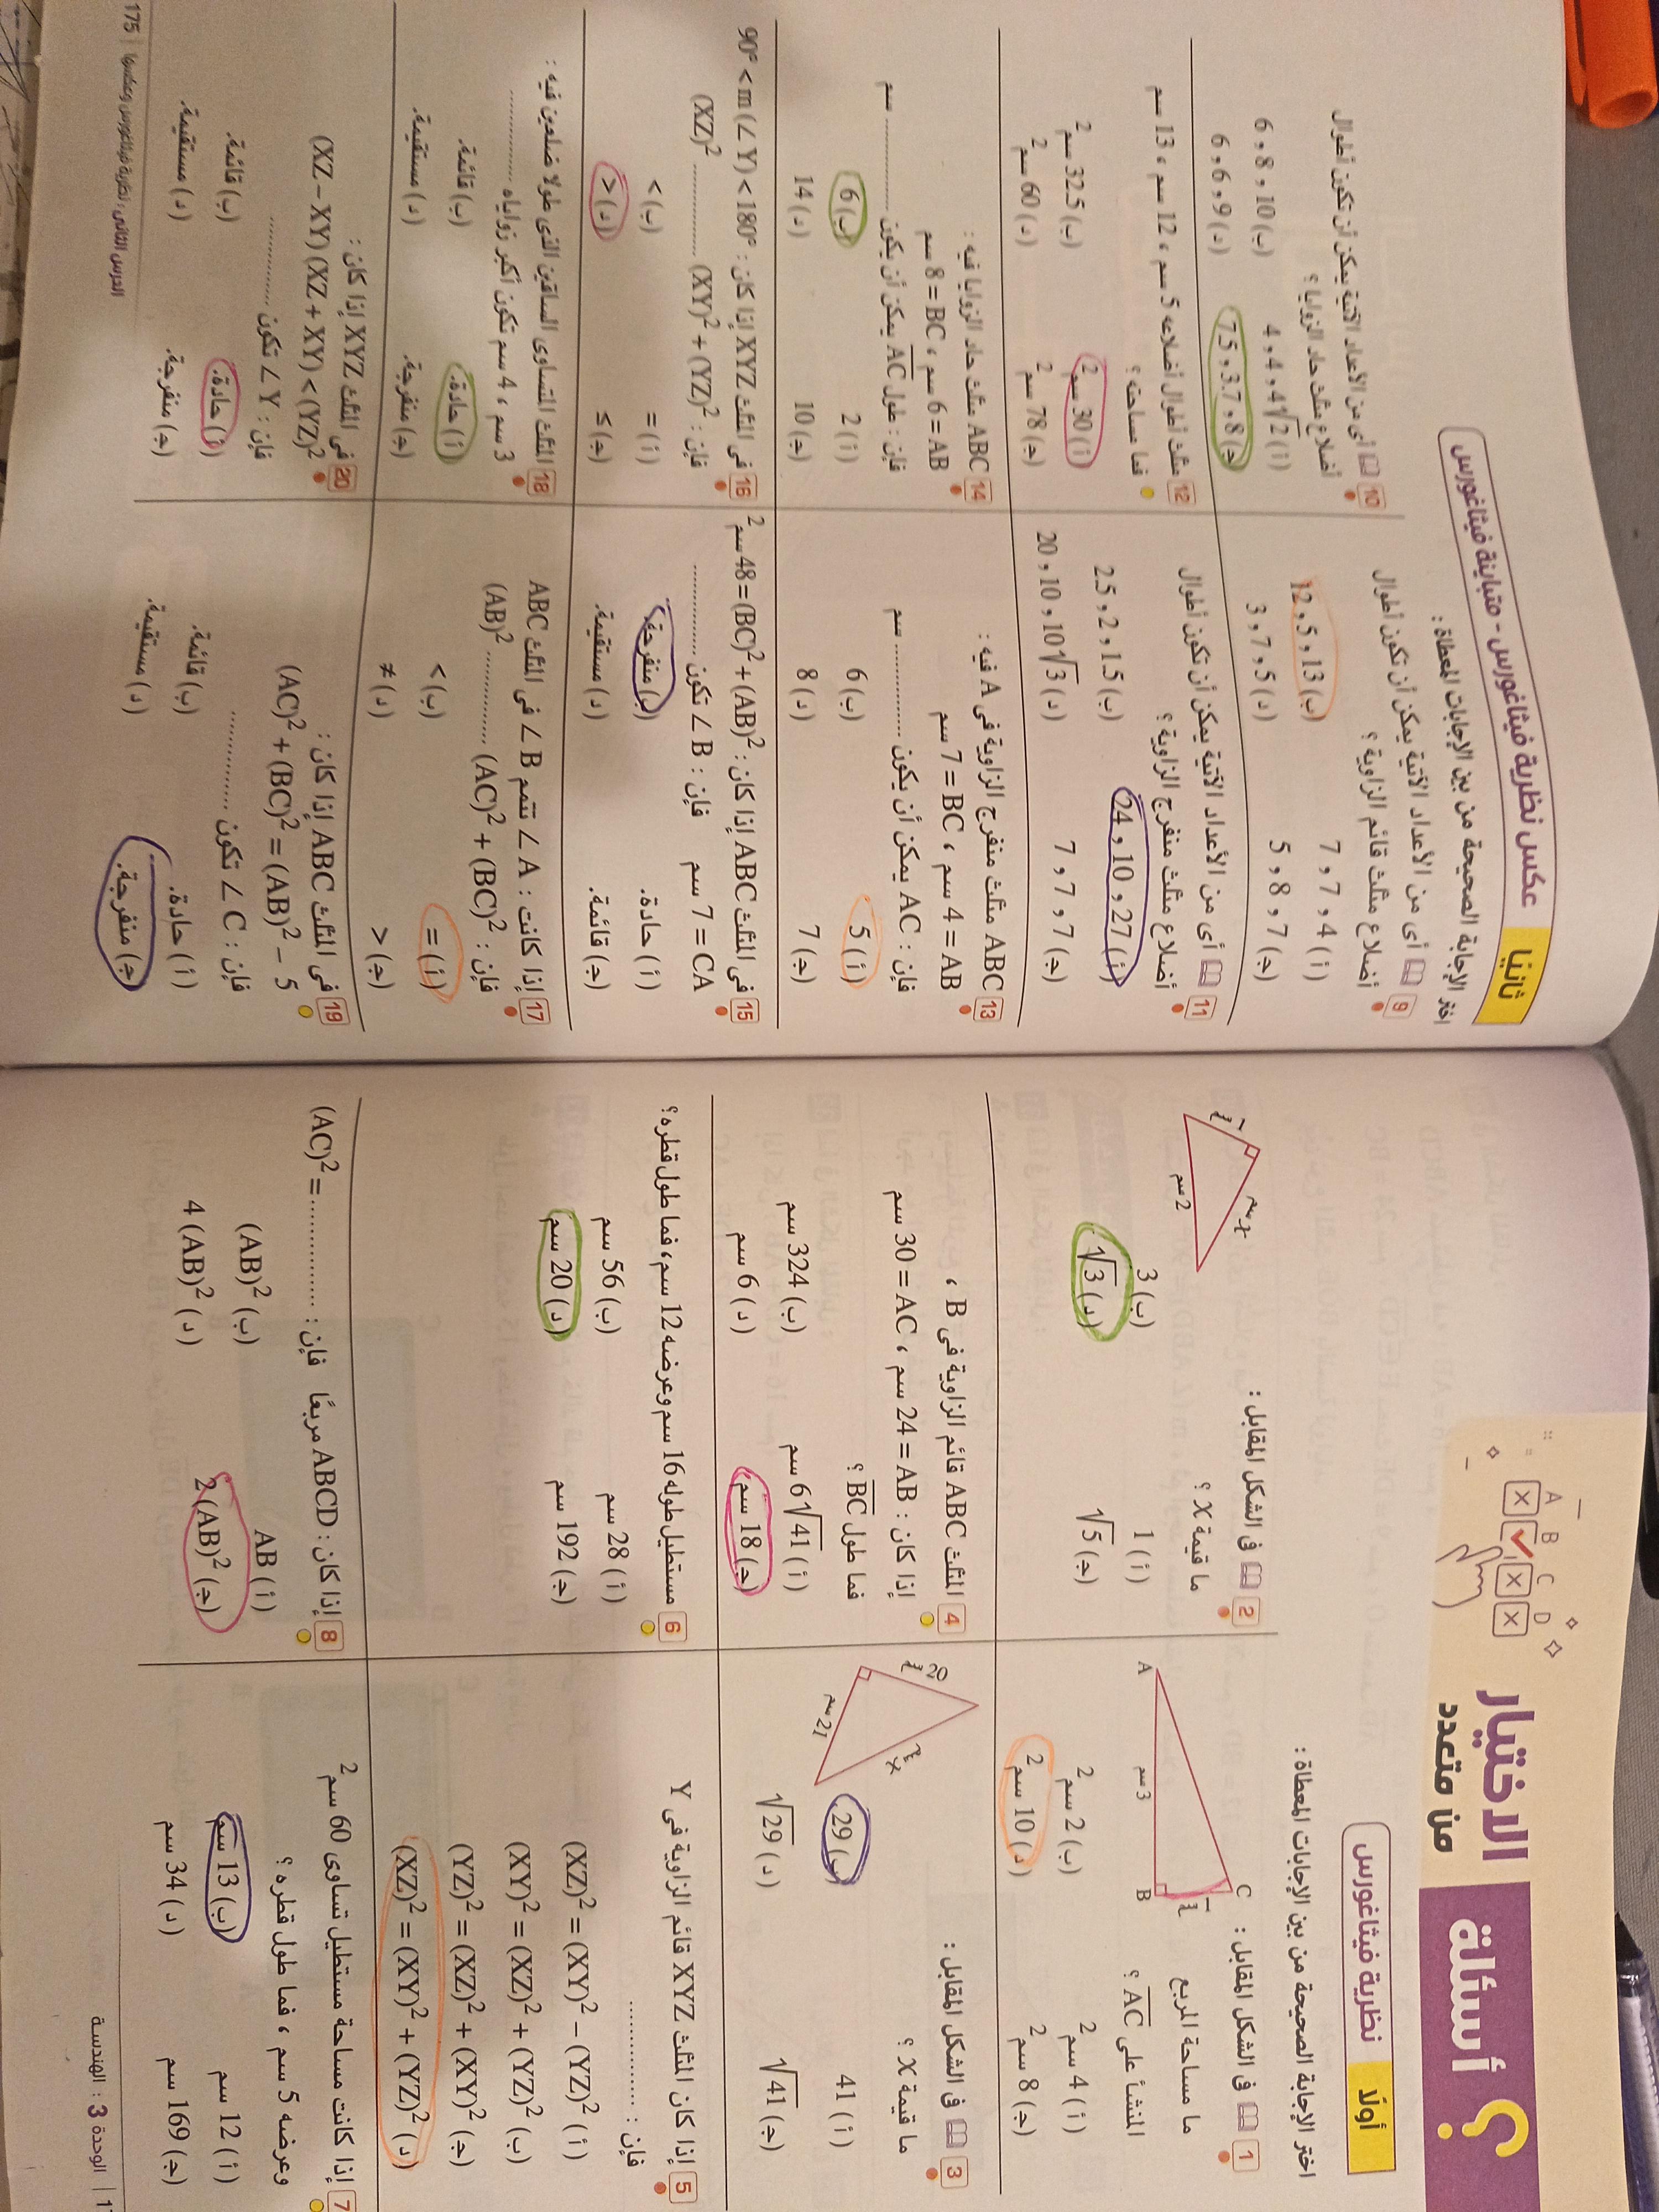 ؟ أسئلة الاختيار من متعدد
A B C D
أولًا نظرية فيثاغورس
اختر الإجابة الصحيحة من بين الإجابات المعطاة :
1 فى الشكل المقابل :
ما مساحة المربع
المنشأ على AC ؟
C
1 سم
A 3 سم B
(أ) 4 سم2 (ب) 2 سم2
(جـ) 8 سم2 (د) 10 سم2
2 فى الشكل المقابل :
ما قيمة X ؟
1 سم
X سم
2 سم
(أ) 1 (ب) 3
(جـ) √5 (د) √3
3 فى الشكل المقابل :
ما قيمة X ؟
20 سم
X سم
21 سم
(أ) 41 (ب) 29
(جـ) √41 (د) √29
4 المثلث ABC قائم الزاوية فى B ،
إذا كان : AB = 24 سم ، AC = 30 سم
فما طول BC ؟
(أ) 6√41 سم (ب) 324 سم
(جـ) 18 سم (د) 6 سم
5 إذا كان المثلث XYZ قائم الزاوية فى Y
فإن : ..............
(أ) (XZ)² = (XY)² − (YZ)²
(ب) (XY)² = (XZ)² + (YZ)²
(جـ) (YZ)² = (XZ)² + (XY)²
(د) (XZ)² = (XY)² + (YZ)²
6 مستطيل طوله 16 سم وعرضه 12 سم، فما طول قطره؟
(أ) 28 سم (ب) 56 سم
(جـ) 192 سم (د) 20 سم
7 إذا كانت مساحة مستطيل تساوى 60 سم2
وعرضه 5 سم ، فما طول قطره ؟
(أ) 12 سم (ب) 13 سم
(جـ) 169 سم (د) 34 سم
8 إذا كان : ABCD مربعًا فإن : .............. = (AC)²
(أ) AB (ب) (AB)²
(جـ) 2 (AB)² (د) 4 (AB)²
الوحدة 3 : الهندسة
ثانيًا عكس نظرية فيثاغورس - متباينة فيثاغورس
اختر الإجابة الصحيحة من بين الإجابات المعطاة :
9 أى من الأعداد الآتية يمكن أن تكون أطوال
أضلاع مثلث قائم الزاوية ؟
(أ) 4 ، 7 ، 7 (ب) 13 ، 5 ، 12
(جـ) 7 ، 8 ، 5 (د) 5 ، 7 ، 3
10 أى من الأعداد الآتية يمكن أن تكون أطوال
أضلاع مثلث حاد الزوايا ؟
(أ) 4√2 ، 4 ، 4 (ب) 10 ، 8 ، 6
(جـ) 8 ، 3.7 ، 7.5 (د) 9 ، 6 ، 6
11 أى من الأعداد الآتية يمكن أن تكون أطوال
أضلاع مثلث منفرج الزاوية ؟
(أ) 27 ، 10 ، 24 (ب) 1.5 ، 2 ، 2.5
(جـ) 7 ، 7 ، 7 (د) 10√3 ، 10 ، 20
12 مثلث أطوال أضلاعه 5 سم ، 12 سم ، 13 سم
فما مساحته ؟
(أ) 30 سم2 (ب) 32.5 سم2
(جـ) 78 سم2 (د) 60 سم2
13 ABC مثلث منفرج الزاوية فى A فيه :
AB = 4 سم ، BC = 7 سم
فإن : AC يمكن أن يكون .............. سم
(أ) 5 (ب) 6
(جـ) 7 (د) 8
14 ABC مثلث حاد الزوايا فيه :
AB = 6 سم ، BC = 8 سم
فإن : طول AC يمكن أن يكون .............. سم
(أ) 2 (ب) 6
(جـ) 10 (د) 14
15 فى المثلث ABC إذا كان : (AB)² + (BC)² = 48 سم2
CA = 7 سم فإن : ∠ B تكون ..............
(أ) حادة. (ب) منفرجة.
(جـ) قائمة. (د) مستقيمة.
16 فى المثلث XYZ إذا كان : 90° < m (∠ Y) < 180°
فإن : (XY)² + (YZ)² .............. (XZ)²
(أ) = (ب) <
(جـ) ≤ (د) >
17 إذا كانت : ∠ A تتمم ∠ B فى المثلث ABC
فإن : (AC)² + (BC)² .............. (AB)²
(أ) = (ب) <
(جـ) > (د) ≠
18 المثلث المتساوى الساقين الذى طولا ضلعين فيه :
3 سم ، 4 سم تكون أكبر زواياه ..............
(أ) حادة. (ب) قائمة.
(جـ) منفرجة. (د) مستقيمة.
19 فى المثلث ABC إذا كان :
(AC)² + (BC)² = (AB)² − 5
فإن : ∠ C تكون ..............
(أ) حادة. (ب) قائمة.
(جـ) منفرجة. (د) مستقيمة.
20 فى المثلث XYZ إذا كان :
(XZ − XY) (XZ + XY) < (YZ)²
فإن : ∠ Y تكون ..............
(أ) حادة. (ب) قائمة.
(جـ) منفرجة. (د) مستقيمة.
الدرس الثانى : نظرية فيثاغورس وعكسها | 175